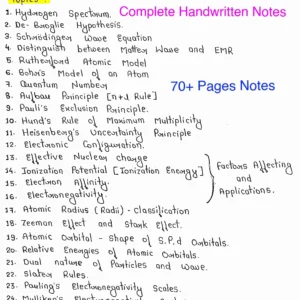 Topics
Complete Handwritten Notes
1. Hydrogen Spectrum.
2. De-Broglie Hypothesis.
3. Schrödinger Wave Equation
4. Distinguish between Matter Wave and EMR
5. Rutherford Atomic Model
6. Bohr's Model of an Atom
70+ Pages Notes
7. Quantum Number
8. Aufbau Principle [n+l Rule]
9. Pauli's Exclusion Principle.
10. Hund's Rule of Maximum Multiplicity
11. Heisenberg's Uncertainty Principle
12. Electronic Configuration.
13. Effective Nuclear charge
14. Ionization Potential [Ionization Energy]
15. Electron Affinity.
16. Electronegativity.
Factors Affecting
and
Applications.
17. Atomic Radius (Radii) - Classification
18. Zeeman Effect and Stark Effect.
19. Atomic Orbital - Shape of S.P.d Orbitals.
20. Relative Energies of Atomic Orbitals.
21. Dual nature of Particles and Wave.
22. Slater Rules.
23. Pauling's Electronegativity Scales.
24. Mulliken's Electronegativity